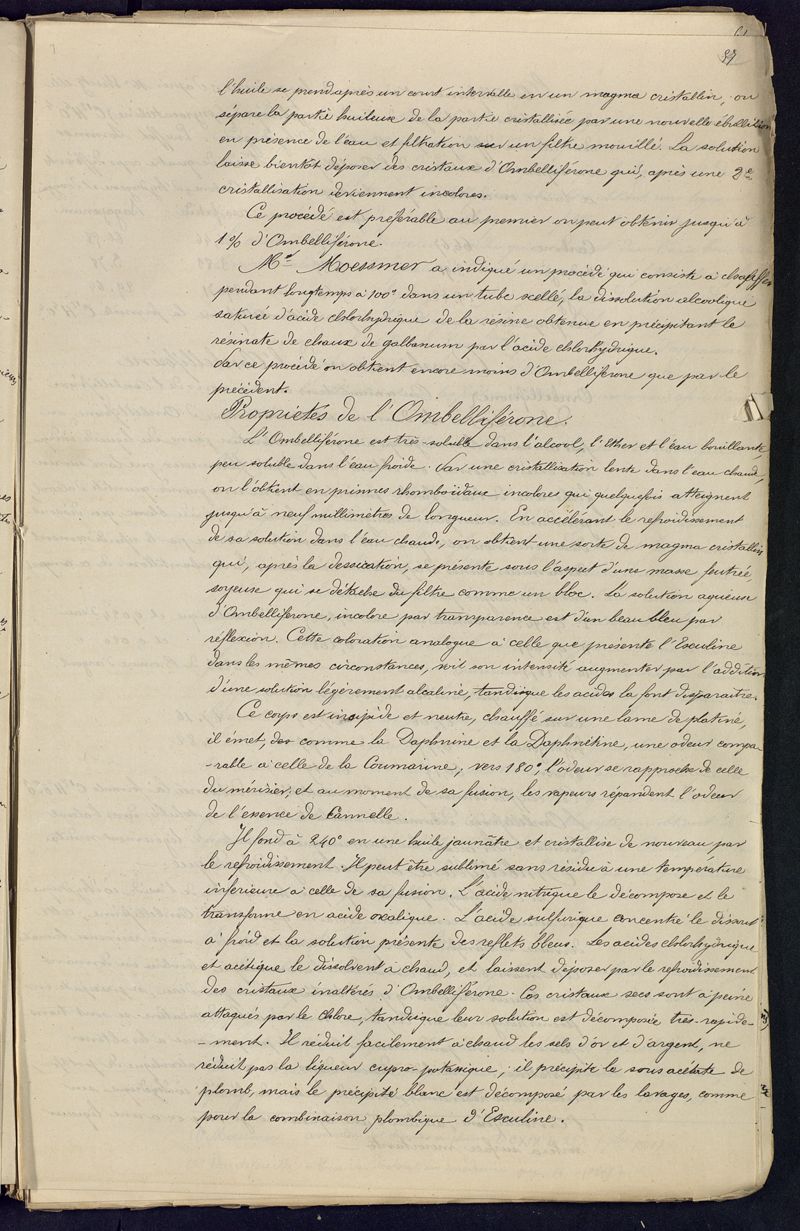 37
l'huile se prend après un court intervalle en un magma cristallin, on
sépare la partie huileuse de la partie cristallisée par une nouvelle ébullition
en présence de l'eau et filtration sur un filtre mouillé. La solution
laisse bientôt déposer des cristaux d'Ombelliférone qui, après une 2e
cristallisation deviennent incolores.
Ce procédé est préférable au premier on peut obtenir jusqu'à
1% d'Ombelliférone.
Mr Moessmer a indiqué un procédé qui consiste à chauffer
pendant longtemps à 100° dans un tube scellé, la dissolution alcoolique
saturée d'acide chlorhydrique de la résine obtenue en précipitant le
résinate de chaux de galbanum par l'acide chlorhydrique.
Par ce procédé on obtient encore moins d'Ombelliférone que par le
précédent.
Propriétés de l'Ombelliférone.
L'Ombelliférone est très-soluble dans l'alcool, l'Ether et l'eau bouillante,
peu soluble dans l'eau froide. Par une cristallisation lente dans l'eau chaude,
on l'obtient en prismes rhomboïdaux incolores qui quelquefois atteignent
jusqu'à neuf millimètres de longueur. En accélérant le refroidissement
de sa solution dans l'eau chaude, on obtient une sorte de magma cristallin
qui, après la dessication, se présente sous l'aspect d'une masse feutrée,
soyeuse qui se détache du filtre comme un bloc. La solution aqueuse
d'Ombelliférone, incolore par transparence est d'un beau bleu par
réflexion. Cette coloration analogue à celle que présente l'Esculine
dans les mêmes circonstances, voit son intensité augmenter par l'addition
d'une solution légèrement alcaline, tandisque les acides la font disparaître.
Ce corps est insipide et neutre, chauffé sur une lame de platine,
il émet, des comme la Daphnine et la Daphnétine, une odeur compa-
-rable à celle de la Coumarine; vers 180°, l'odeur se rapproche de celle
du mérisier, et au moment de sa fusion, les vapeurs répandent l'odeur
de l'essence de Cannelle.
Il fond à 240° en une huile jaunâtre et cristallise de nouveau par
le refroidissement. Il peut être sublimé sans résidu à une température
inférieure à celle de sa fusion. L'acide nitrique le décompose et le
transforme en acide oxalique. L'acide sulfurique concentré le dissout
à froid et la solution présente des reflets bleus. Les acides chlorhydrique
et acétique le dissolvent à chaud, et laissent déposer par le refroidissement
des cristaux inaltérés d'Ombelliférone. Ces cristaux secs sont à peine
attaqués par le chlore, tandisque leur solution est décomposée très-rapide-
-ment. Il réduit facilement à chaud les sels d'or et d'argent, ne
réduit pas la liqueur cupro-potassique; il précipite le sous acétate de
plomb, mais le précipité blanc est décomposé par les lavages, comme
pour la combinaison plombique d'Esculine.